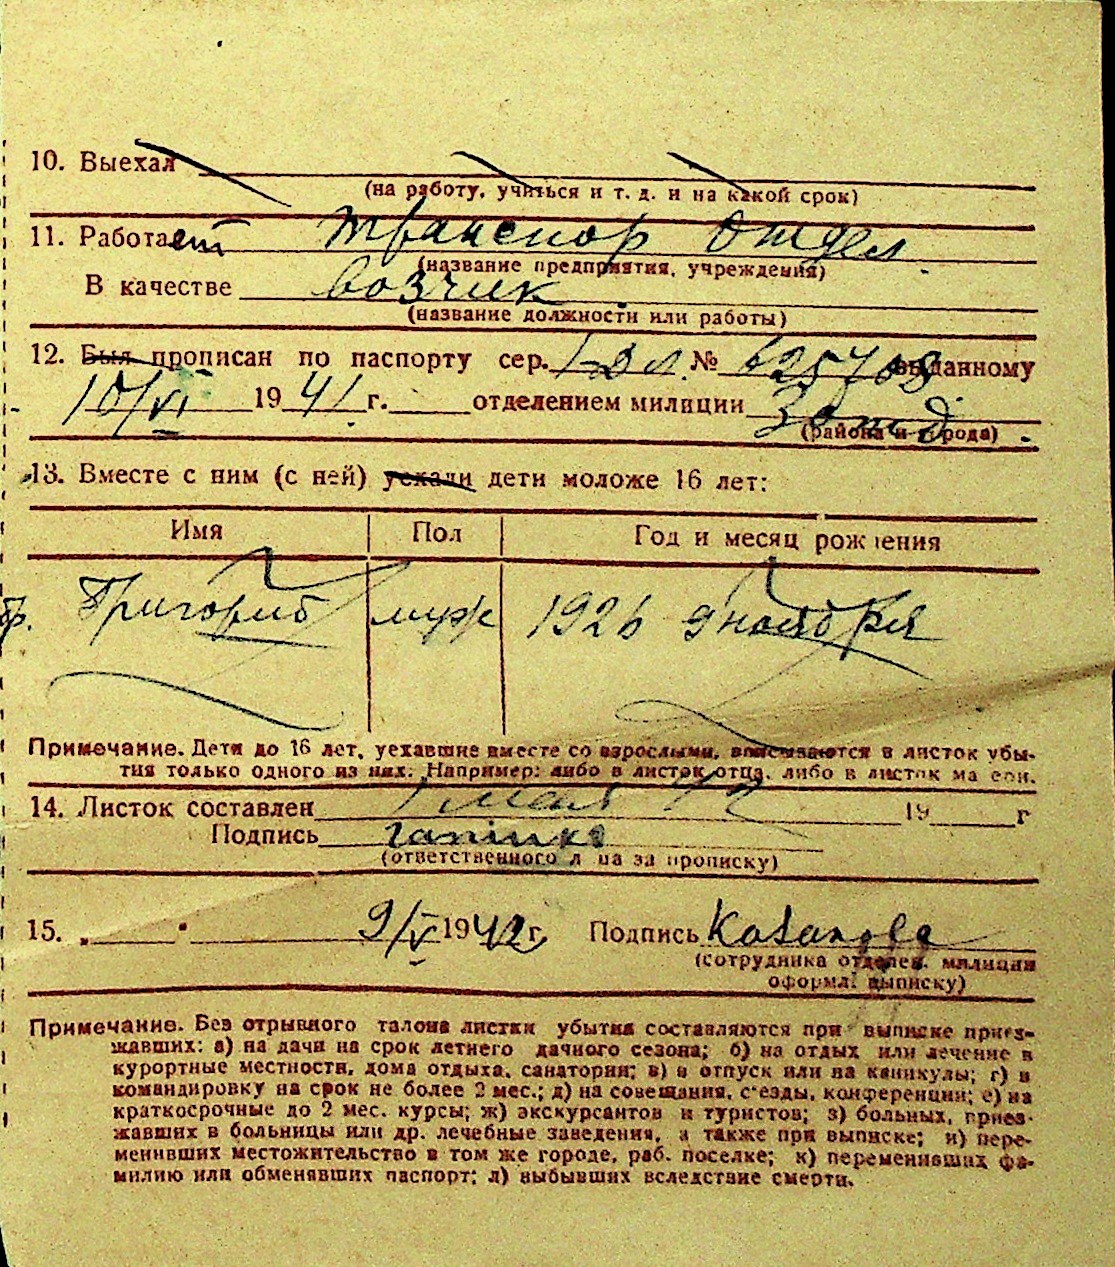 10. Выехал
(на работу, учиться и т. д. и на какой срок)
11. Работает Транспор Отдел
(название предприятия, учреждения)
В качестве возчик
(название должности или работы)
12. Был прописан по паспорту сер. № 625708 выданному
10/VI 1941 г. отделением милиции 3 отд
(района и города)
13. Вместе с ним (с ней) уехали дети моложе 16 лет:
Имя Пол Год и месяц рождения
Григорий муж 1926 9 ноября
Примечание. Дети до 16 лет, уехавшие вместе со взрослыми, вписываются в листок убы-
тия только одного из них: Например: либо в листок отца, либо в листок матери.
14. Листок составлен 1 мая 42 19 г
Подпись
(ответственного лица за прописку)
15. „ " 9/V 1942 г. Подпись Казакова
(сотрудника отделен. милиции
оформл. выписку)
Примечание. Без отрывного талона листки убытия составляются при выписке приез-
жавших: а) на дачи на срок летнего дачного сезона; б) на отдых или лечение в
курортные местности, дома отдыха, санатории; в) в отпуск или на каникулы; г) в
командировку на срок не более 2 мес.; д) на совещания, с'езды, конференции; е) на
краткосрочные до 2 мес. курсы; ж) экскурсантов и туристов; з) больных, приез-
жавших в больницы или др. лечебные заведения, а также при выписке; и) пере-
менивших местожительство в том же городе, раб. поселке; к) переменивших фа-
милию или обменявших паспорт; л) выбывших вследствие смерти.